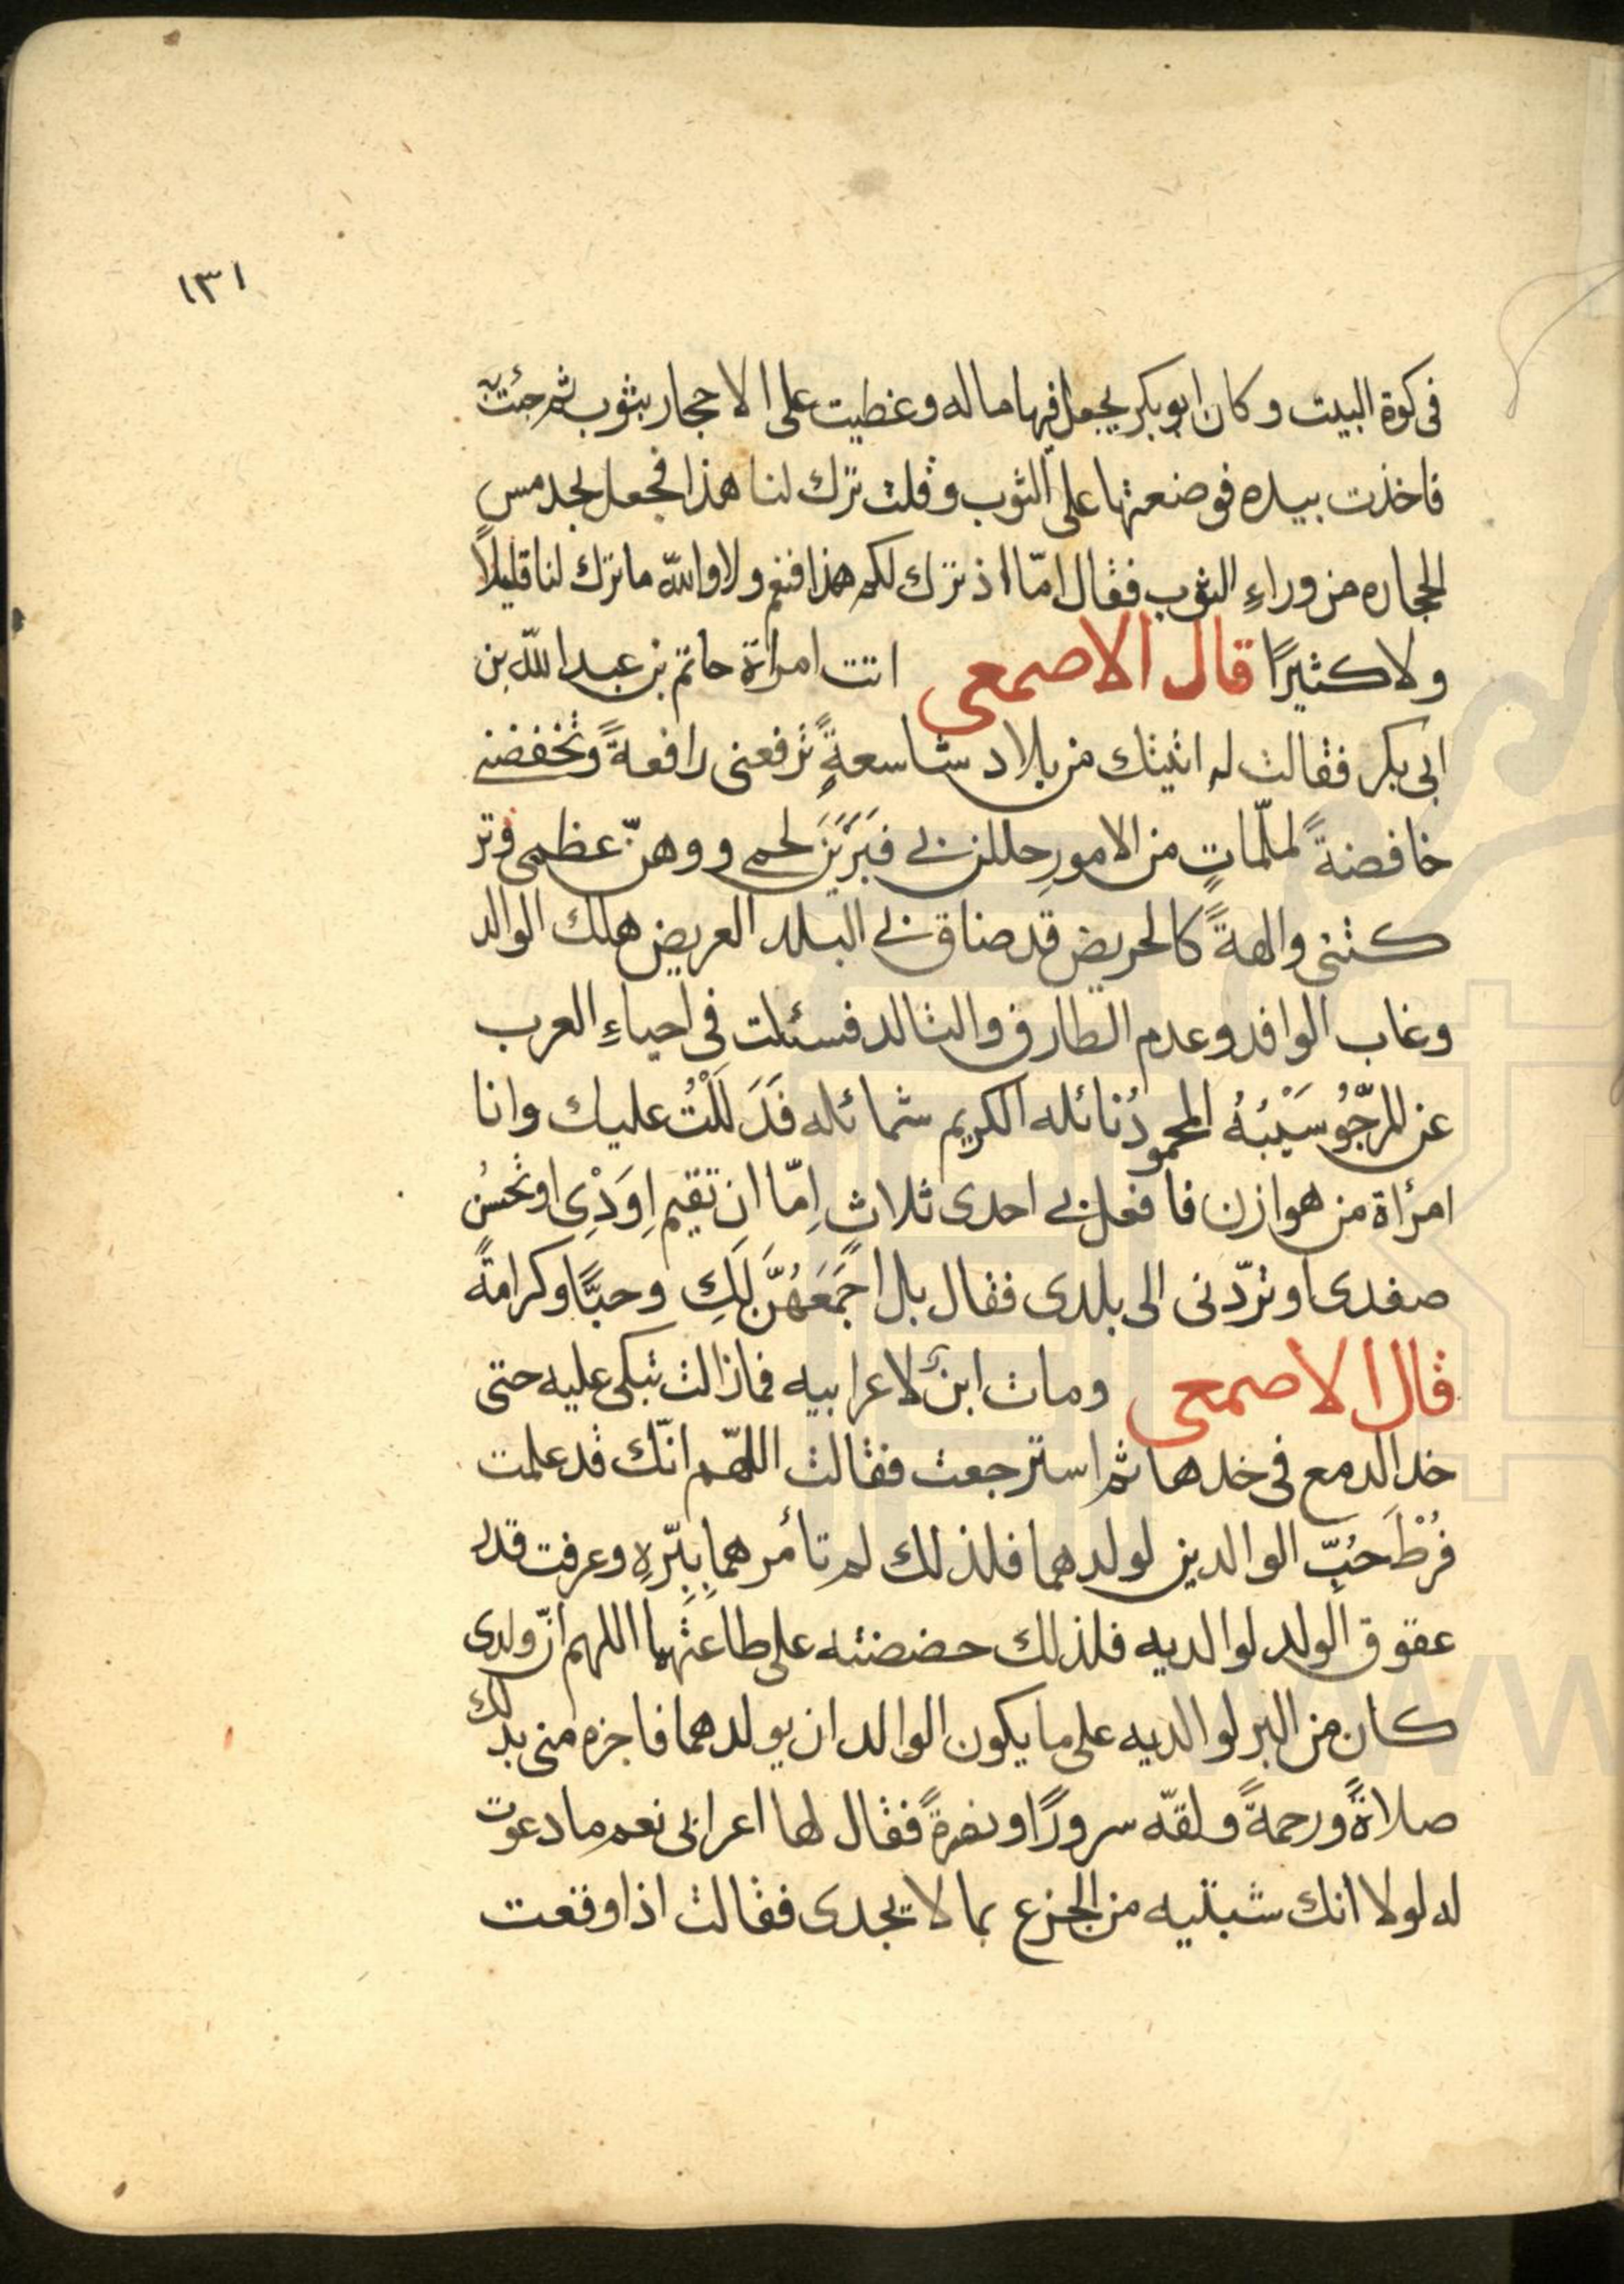 ١٣١
فى كوة البيت وكان ابو بكر يجعل فيها ماله وغطيت على الاحجار بثوب ثم جئت به
فاخذت بيده فوضعتها على الثوب وقلت ترك لنا هذا فجعل يجد مس
الحجاره من وراءِ الثوب فقال امّا اذ ترك لكم هذا فنعم ولا والله ما ترك لنا قليلاً
ولا كثيرًا قال الاصمعى اتت امراة حاتم بن عبد الله بن
ابى بكر فقالت له اتيتك من بلاد شاسعةٍ ترفعنى رافعةً وتخفضنى
خافضةً لملّماتٍ من الامورِ حللن بى فبَرَيْنَ لحمى ووهنّ عظمى وتر
كتنى والهةً كالحريض قد ضاق بى البلد العريض هلك الوالد
وغاب الوافد وعدم الطارف والتالد فسئلت فى احياءِ العرب
عن المرجّوُ سَيْبُهُ المحمودُ نائله الكريم شمائله فَدَلَلْتُ عليك وانا
امرٔاة من هوازن فافعل بى احدى ثلاثٍ اِمّا ان تقيم اِوَدْى او تحسُن
صفدى او تردّنى الى بلدى فقال بل اجمَعَهُنَّ لَكِ وحبًّا وكرامةً
قال الاصمعى ومات ابنٌ لاعرابيه فمازالت تبكى عليه حتى
خد الدمع فى خدها ثم استرجعت فقالت اللهّم انّك قد علمت
فُرْطَ حُبّ الوالدين لولدهما فلذلك لم تأمرهما بِبّرهِ وعرفت قدر
عقوق الولد لوالديه فلذلك حضضته على طاعتهما اللهم انّ ولدى
كان من البر لوالديه على ما يكون الوالدان بولدهما فاجزه منى بذلك
صلاةً ورحمةً ولقّه سرورًا ونضرةً فقال لها اعرابى نعم ما دعوت
له لولا انك شبتيه من الجزع بما لا يجدى فقالت اذا وقعت